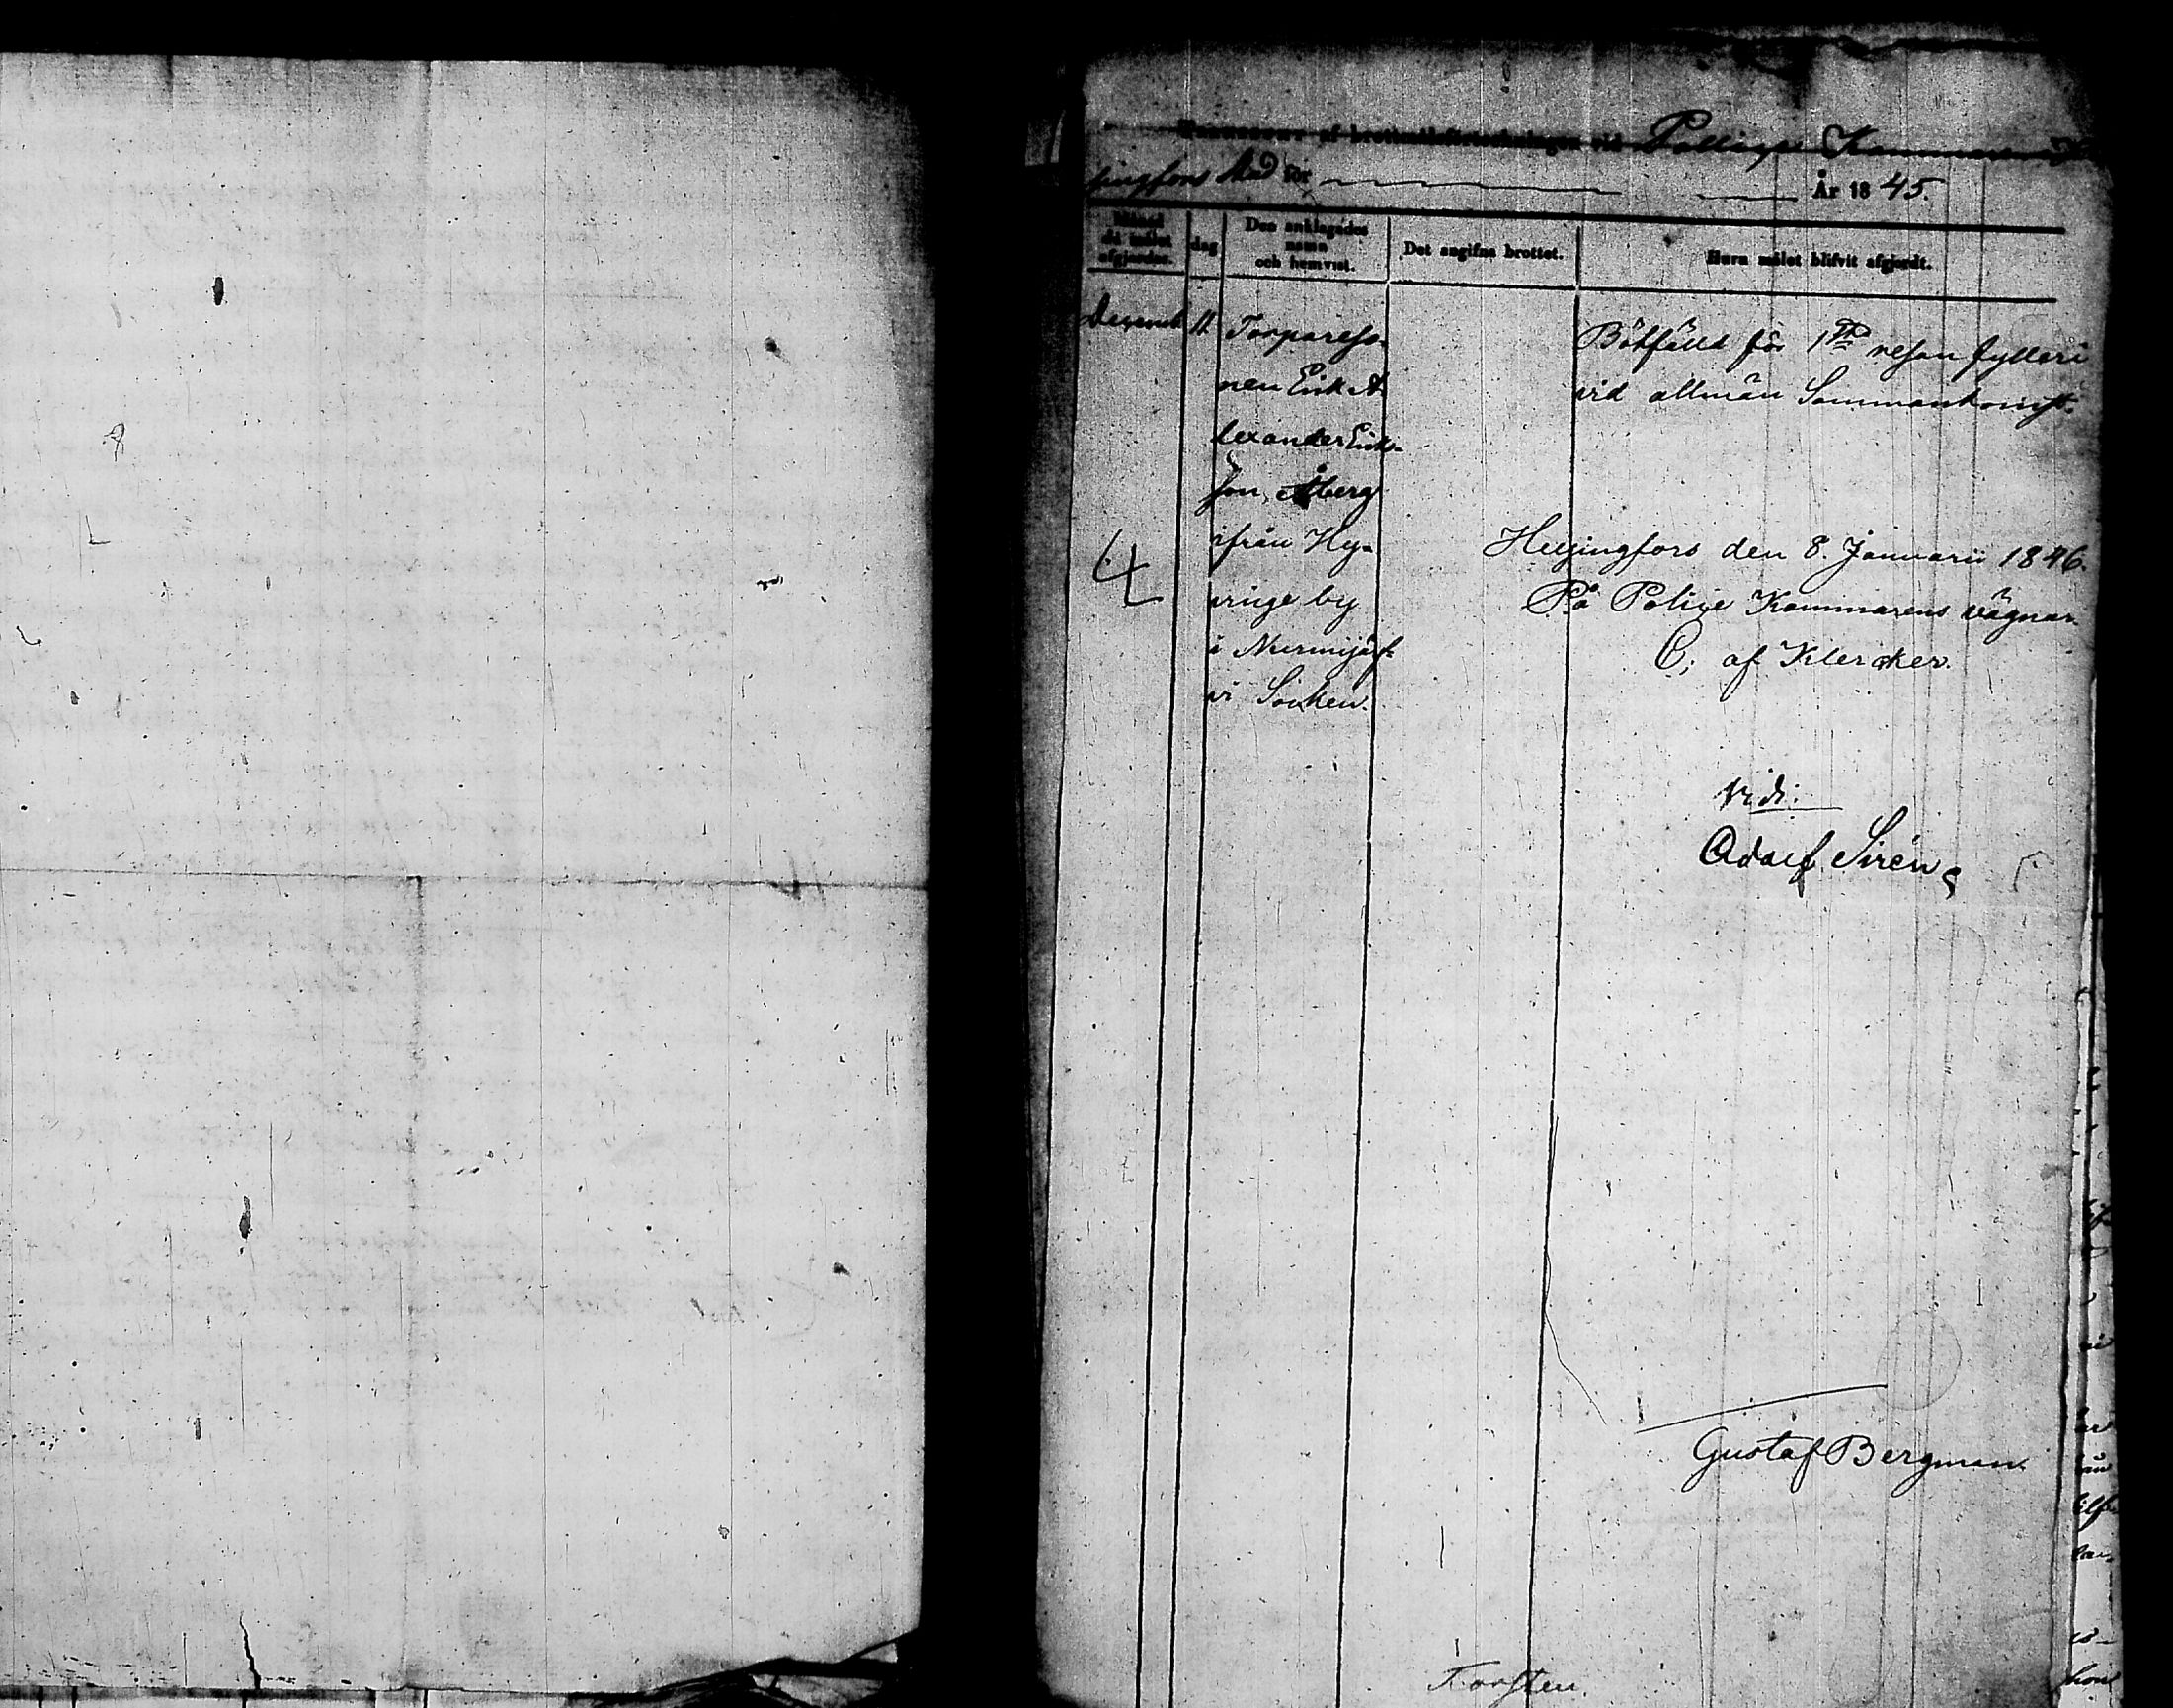 af brottmålsförteckningen vid Polliçe Kammaren i
singfors stad för År 1845.
Månad
då målet
afgjordes.
dag
Den anklagades
namn
och hemvist.
Det angifna brottet.
Huru målet blifvit afgjordt.
December 11 Torpareso-
nen Erik A-
lexander Eriks-
son, Åberg
ifrån Hy-
vinge by
i Nurmijär-
vi Socken.
Bötfälld för 1sta resan fylleri
vid allmän Sammankomst.
4
Helsingfors den 8. Januarii 1846.
På Poliçe Kammarens vägnar
C. af Klercker.
Vidi:
Adolf Sirén
Gustaf Bergman
Torsten